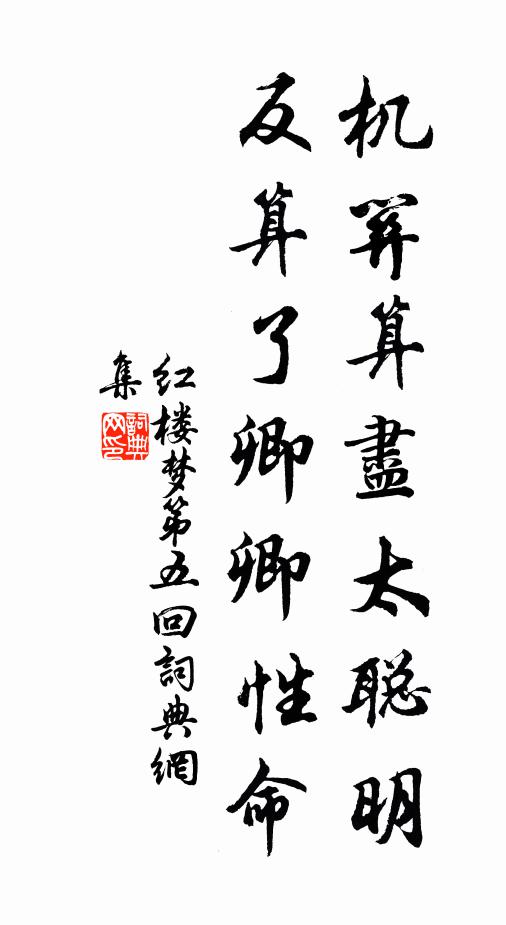 机关算盡太聪明
反算了卿卿性命
红楼梦第五回詞典網
集
詞典
网印